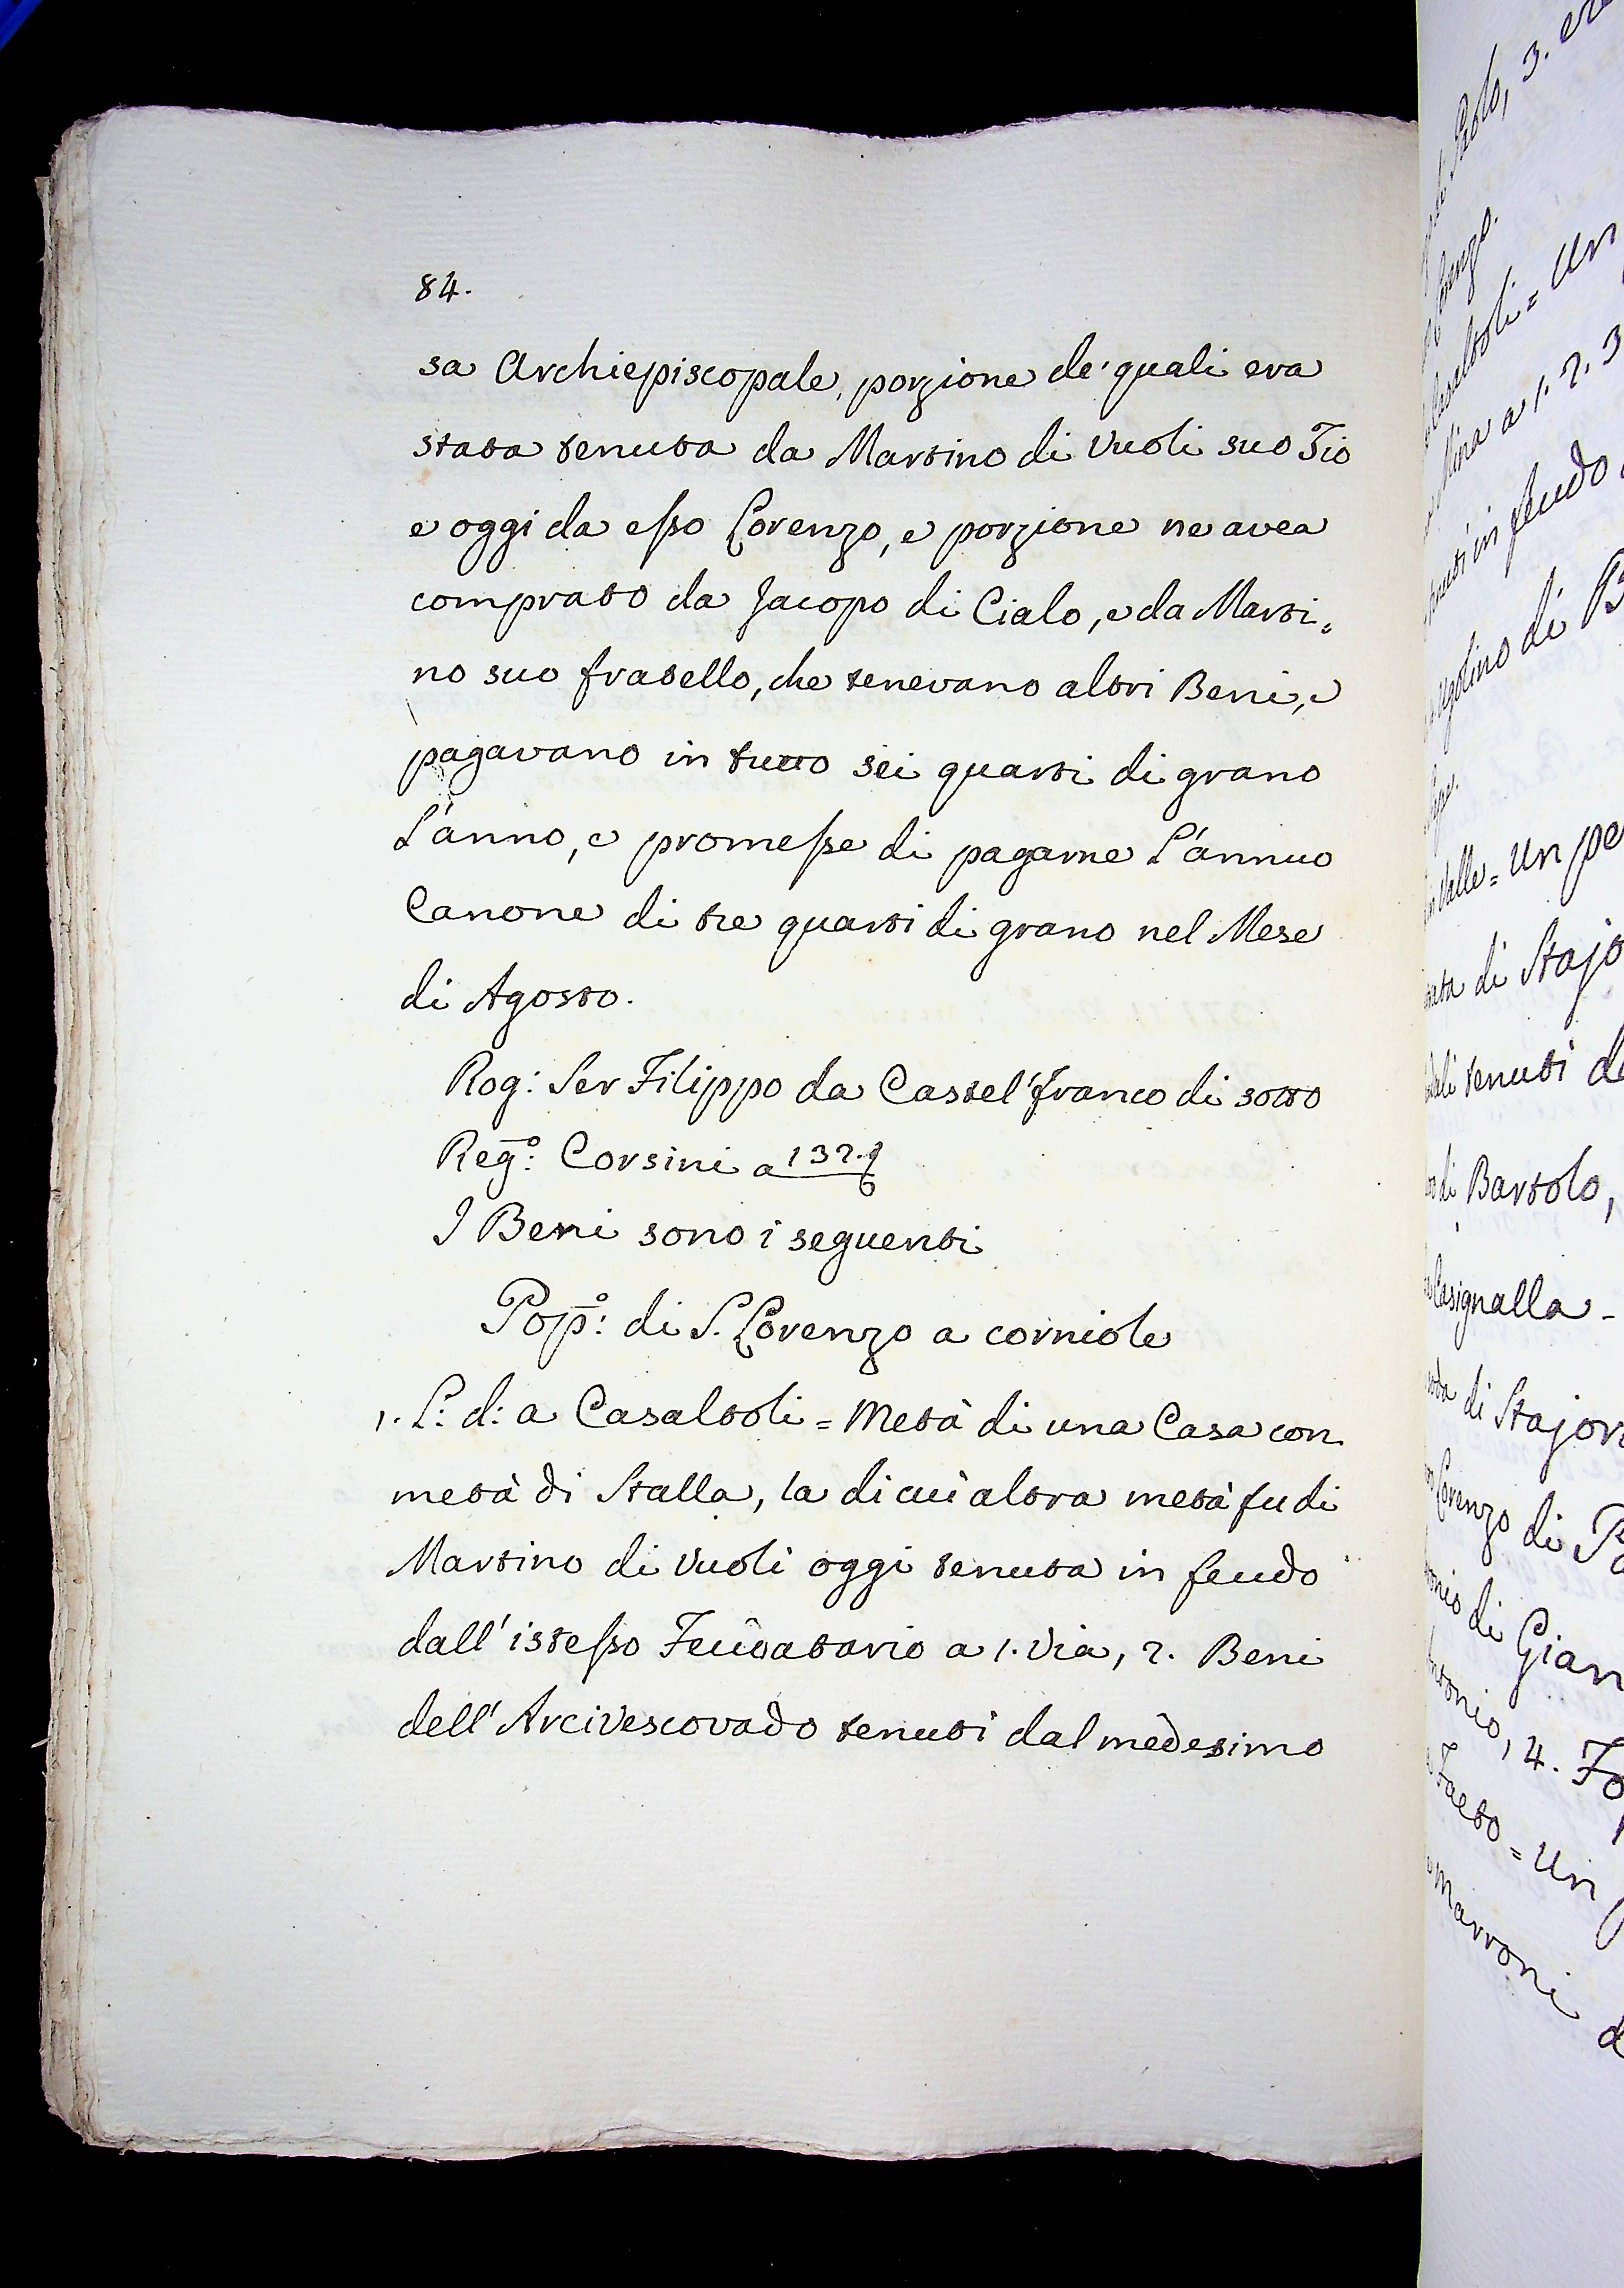 84.
sa Archiepiscopale, porzione de' quali era
stata tenuta da Martino di Vuoli suo Zio
e oggi da esso Lorenzo, e porzione ne avea
comprato da Jacopo di Cialo, e da Marti=
no suo fratello, che tenevano altri Beni, e
pagavano in tutto sei quarti di grano
L'anno, e promesse di pagarne L'annuo
Canone di tre quarti di grano nel Mese
di Agosto.
Rog: Ser Filippo da Castel'franco di sotto
Reg.º: Corsini a 132.
I Beni sono i seguenti
Pop.º: di S. Lorenzo a corniole
1. L: d: a Casaltoli = Metà di una Casa con
metà di Stalla, la di cui altra metà fu di
Martino di Vuoli oggi tenuta in feudo
dall' istesso Feudatario a 1. Via, 2. Beni
dell' Arcivescovado tenuti dal medesimo
Paolo, 3.
= Un
a 1. 2. 3
in feudo
Ugolino di
Valle = Un
di
tenuti
di Bartolo,
Casignalla =
di
Lorenzo di
di
Antonio, 4.
Faeto = Un
Marroni